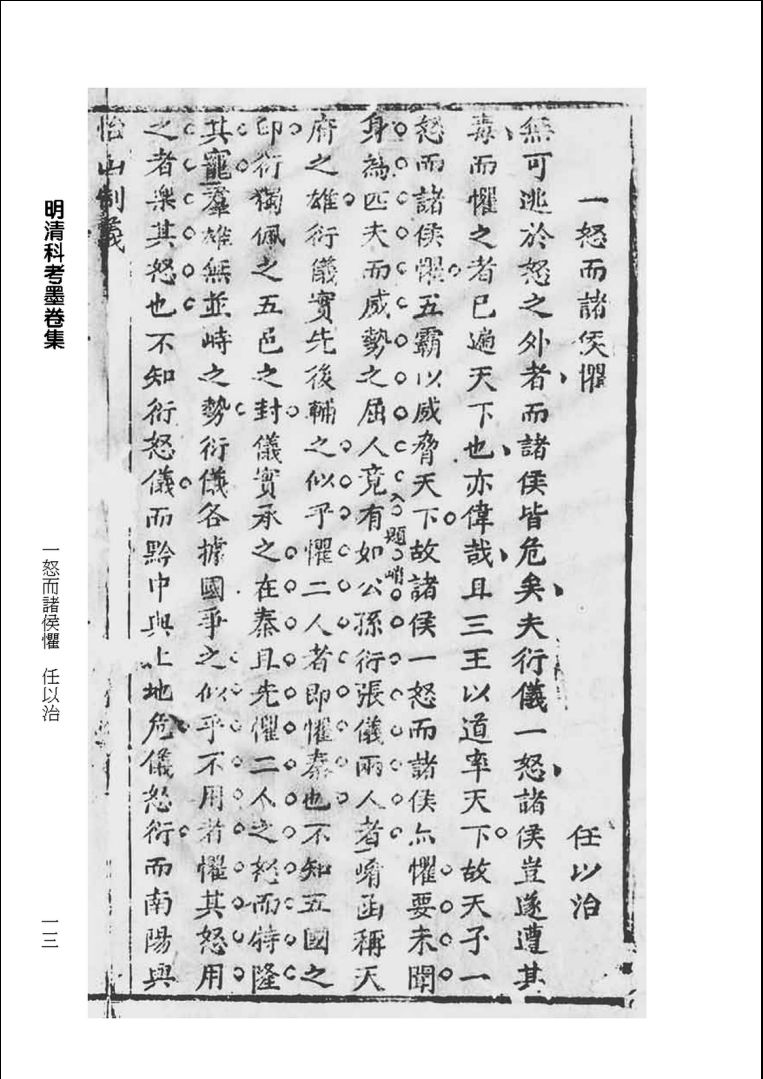 一怒而諸侯懼
任以治
無可逃於怒之外者而諸侯皆危矣夫衍儀一怒諸侯豈遂遭其
毒而懼之者已遍天下也亦偉哉且三王以道率天下故天子一
怒而諸侯懼五霸以威脅天下故諸侯一怒而諸侯亦懼要未聞
合題峭
身為匹夫而威勢之屈人竟有如公孫衍張儀兩人者崤函稱天
府之雄衍儀實先後輔之似乎懼二人者即懼秦也不知五國之
印衍獨佩之五邑之封儀實承之在秦且先懼二人之怒而特隆
其寵羣雄無並峙之勢衍儀各據國爭之似乎不用者懼其怒用
之者樂其怒也不知衍怒儀而黔中與上地危儀怒衍而南陽與
怡山制義
明清科考墨卷集
一怒而諸侯懼 任以治
一三